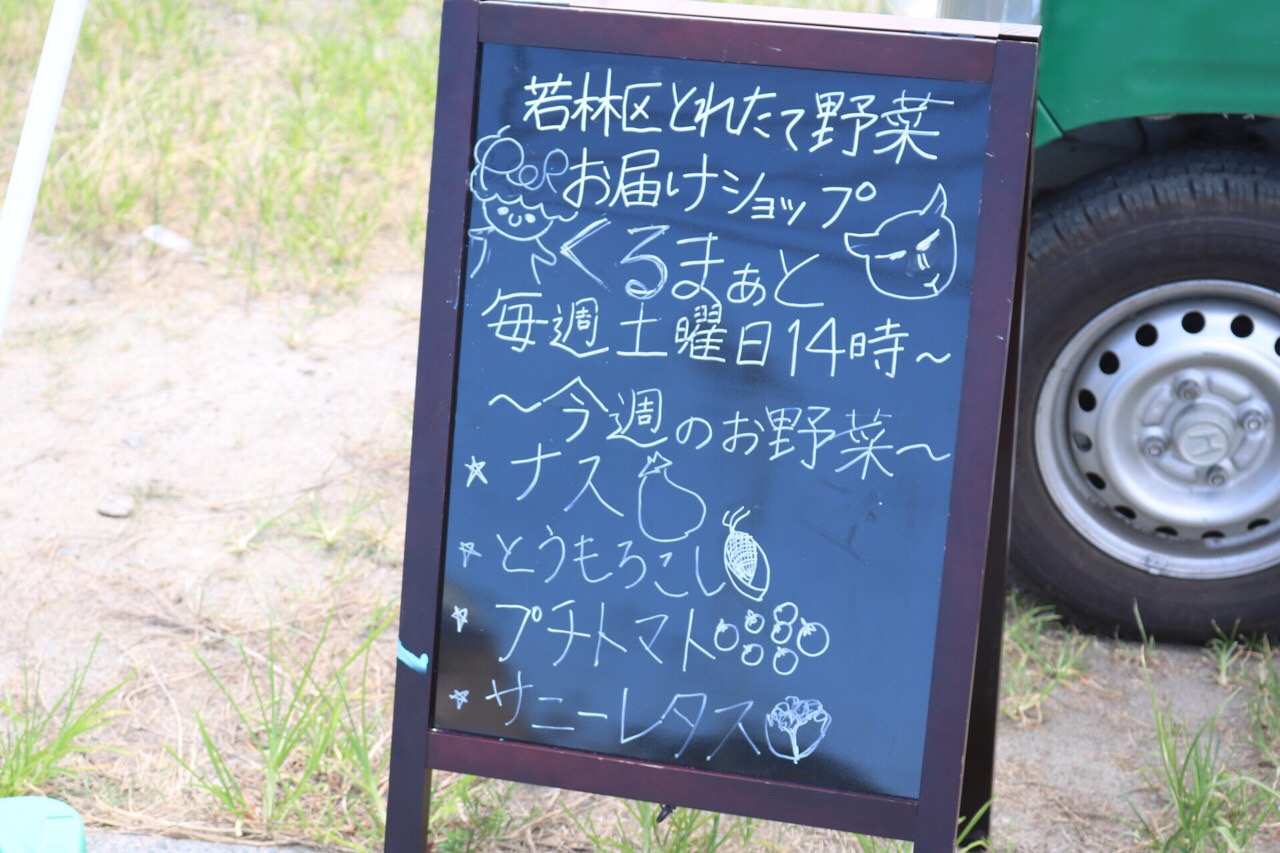 若林区とれたて野菜
お届けショップ
くるまぁと
毎週土曜日14時～
～今週のお野菜～
☆ナス
☆とうもろこし
☆プチトマト
☆サニーレタス